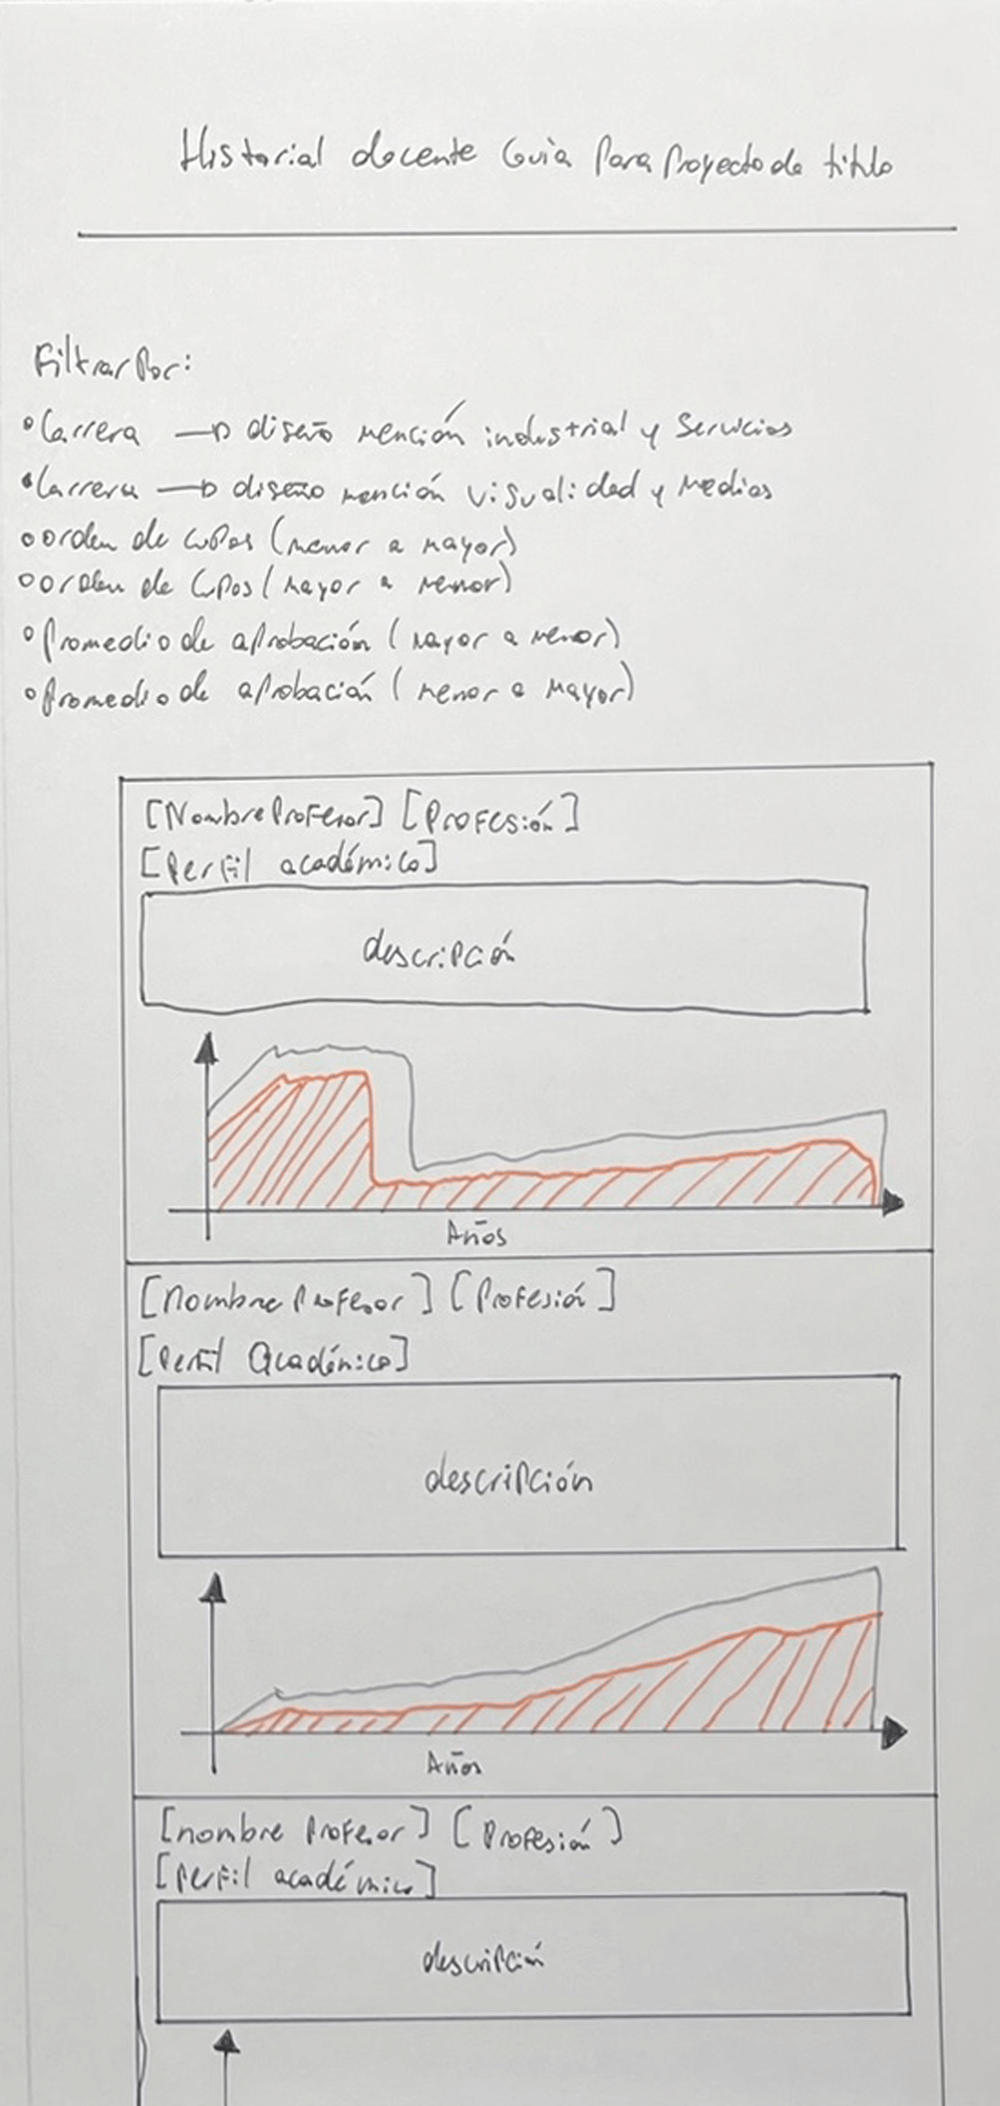 Historial docente Guía Para Proyecto de título
Filtrar Por:
• Carrera → diseño mención industrial y Servicios
• Carrera → diseño mención visualidad y Medios
○ orden de cupos (menor a mayor)
○ orden de cupos (mayor a menor)
○ Promedio de aprobación (mayor a menor)
○ Promedio de aprobación (menor a Mayor)
[Nombre Profesor] [Profesión]
[Perfil académico]
descripción
Años
[Nombre Profesor] [Profesión]
[Perfil Académico]
descripción
Años
[nombre Profesor] [Profesión]
[Perfil académico]
descripción